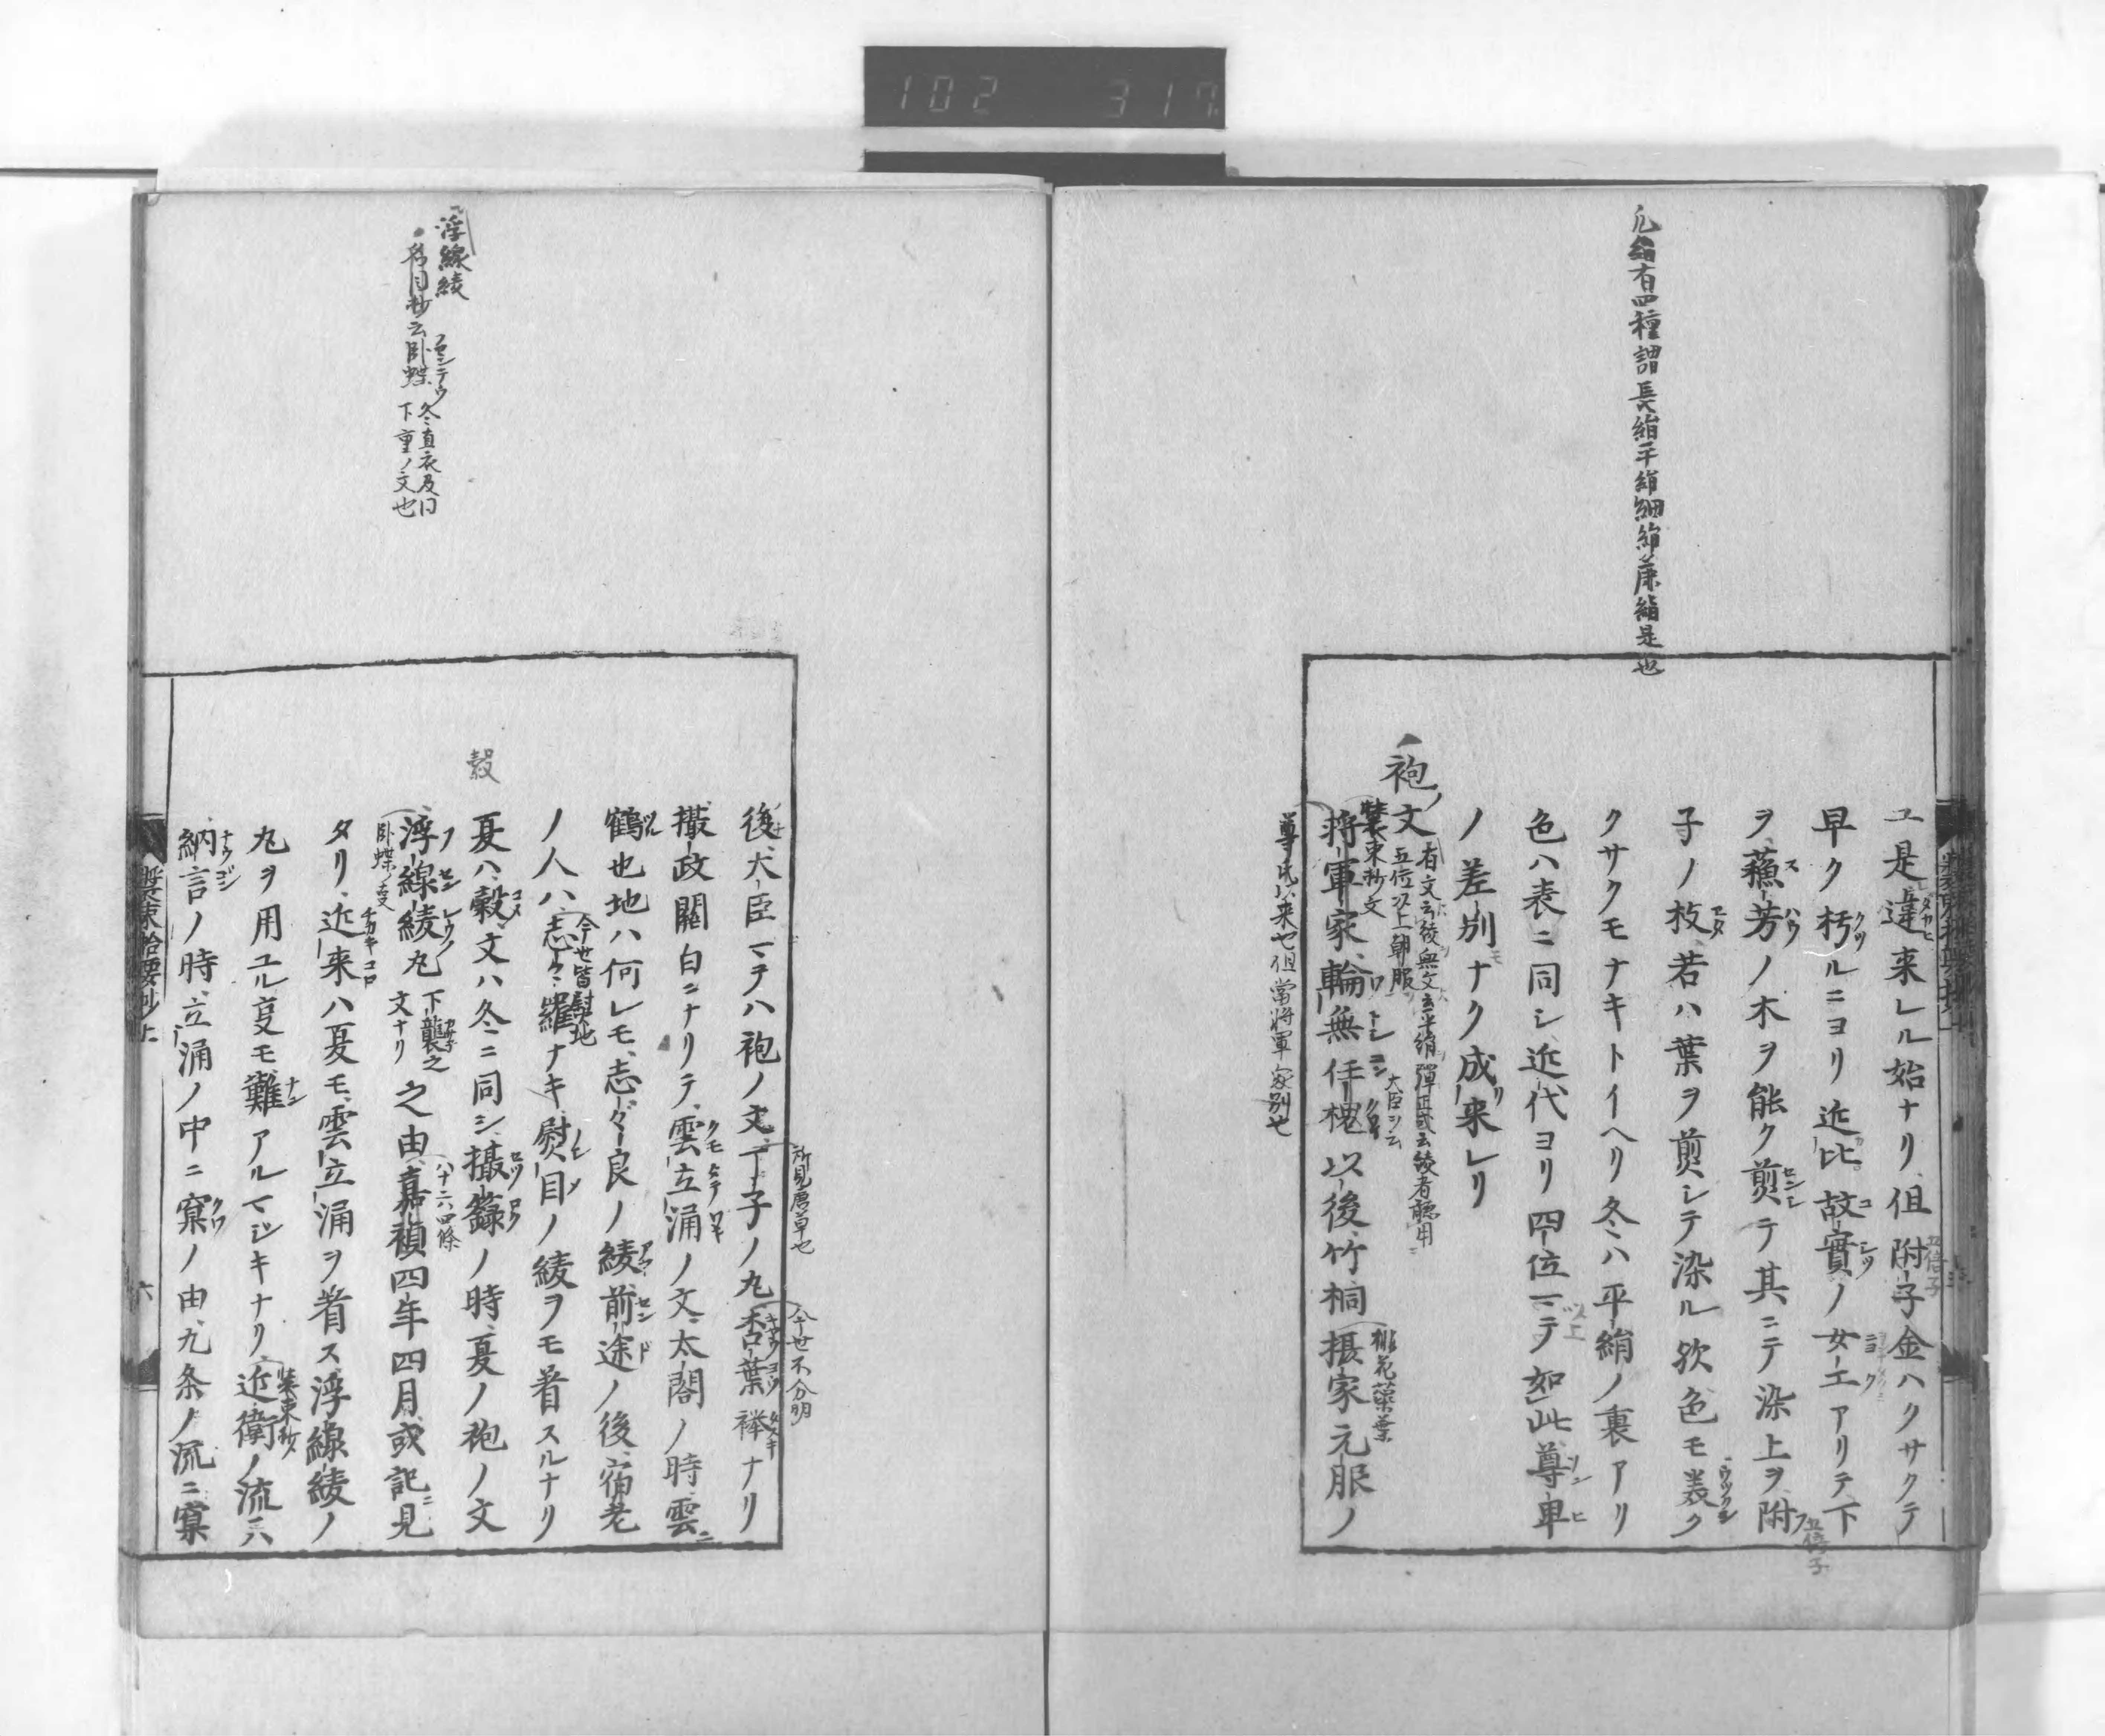 102 317
凡絹有四種謂長絹平絹細絹廉絹是也
ユ是違来レル始ナリ但附子金ハクサクテ
早ク朽ルニヨリ近比故實ノ女エアリテ下
ヲ蘓芳ノ木ヲ能ク煎テ其ニテ染上ヲ附
子ノ枝若ハ葉ヲ煎シテ染ル欤色モ美ク
クサクモナキトイヘリ冬ハ平絹ノ裏アリ
色ハ表ニ同シ近代ヨリ四位マテ如此尊卑
ノ差別ナク成来レリ
袍ノ文
有文云綾無文云平絹彈正或云綾者聴用
五位以上朝服
大臣ヲ云
装束抄文
将軍家輪無任槐以後竹桐摂家元服ノ
桃花蘂葉
尊氏以来也但當将軍家別也
所見唐草也
今世不分明
後大臣マテハ袍ノ文丁子ノ丸杏葉襷ナリ
撮政關白ニナリテ雲立涌ノ文太閤ノ時雲ニ
鶴也地ハ何レモ志ヾ良ノ綾前途ノ後宿老
今世皆慰地
ノ人ハ志ヾ羅ナキ熨目ノ綾ヲモ着スルナリ
穀
夏ハ穀文ハ冬ニ同シ攝籙ノ時夏ノ袍ノ文
浮線綾丸下襲之文ナリ之由嘉禎四年四月或記ニ見
臥蝶ノ支
タリ近来ハ夏モ雲立涌ヲ着ス浮線綾ノ
丸ヲ用ユル夏モ難アルマジキナリ近衛ノ流ハ
装束抄
納言ノ時立涌ノ中ニ窠ノ由九条ノ流ニ窠
浮線綾
名目抄云臥蝶 冬直衣及
下重ノ文也
装束拾要抄上
六